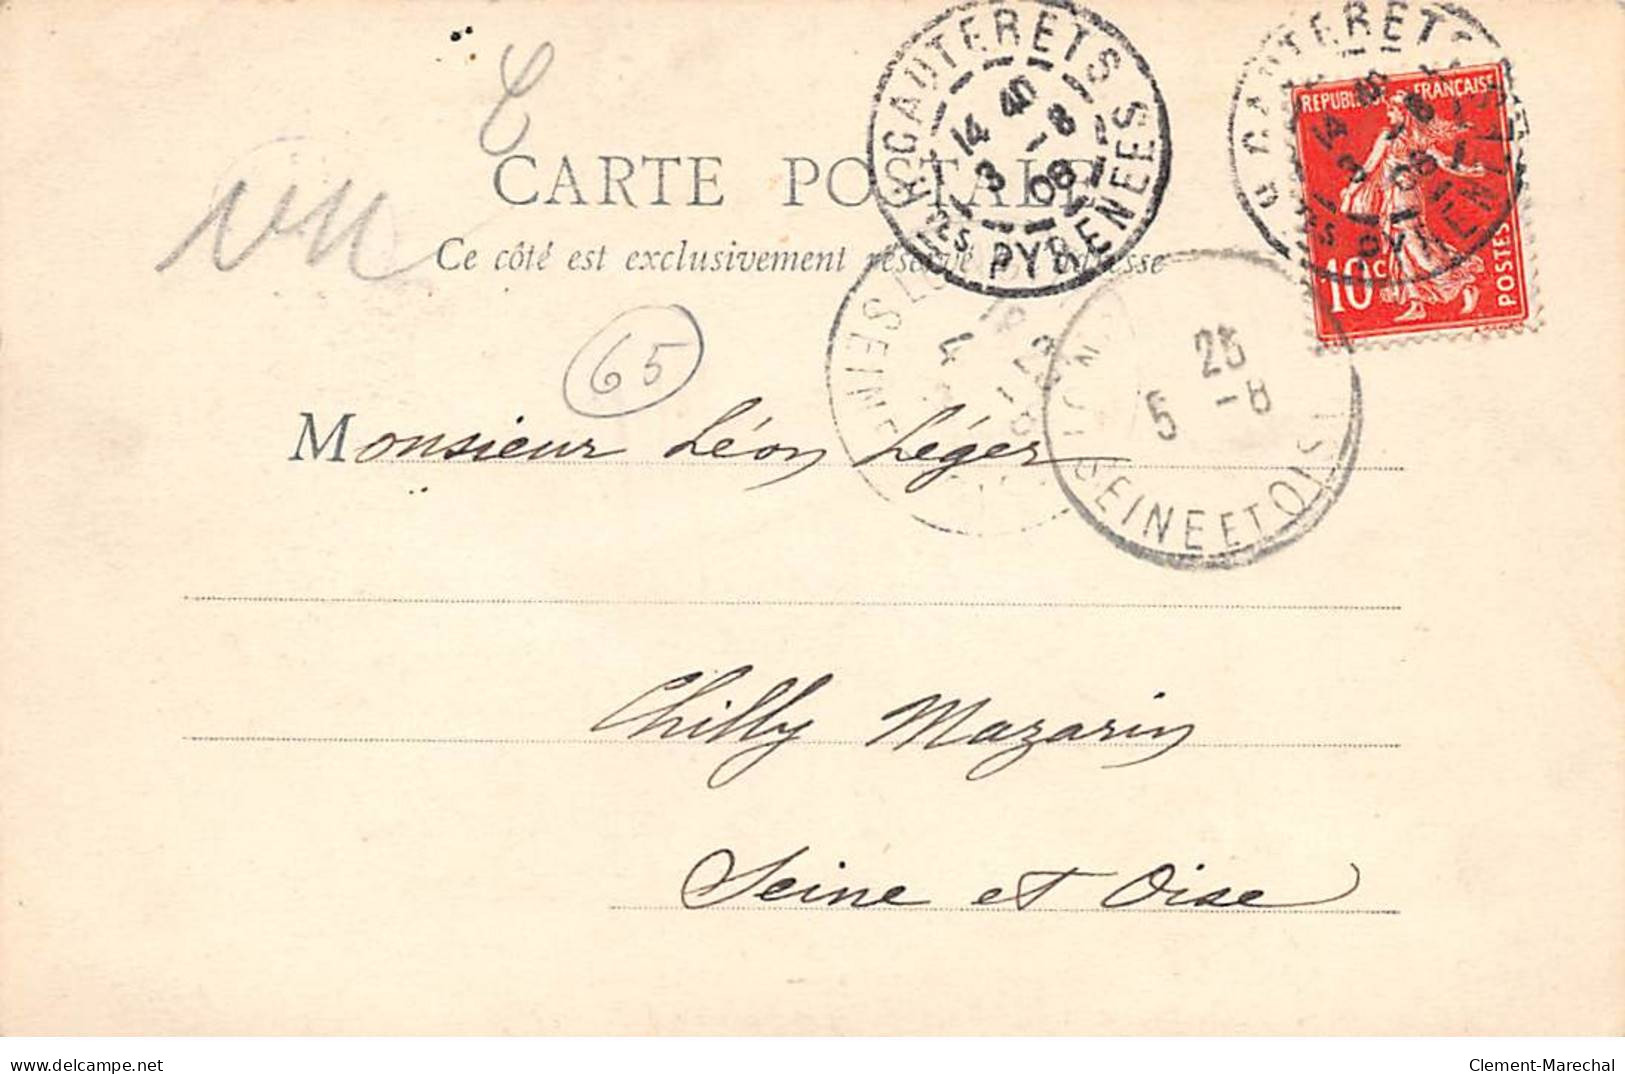 CAUTERETS
14 40
3 - 8
08
Htes PYRENEES
REPUBLIQUE FRANÇAISE
10 c
POSTES
CARTE POSTALE
Ce côté est exclusivement réservé à l'adresse
65
25
5 - 8
SEINE ET OISE
Monsieur Léon Léger
Chilly Mazarin
Seine et Oise
www.delcampe.net
Clement-Marechal